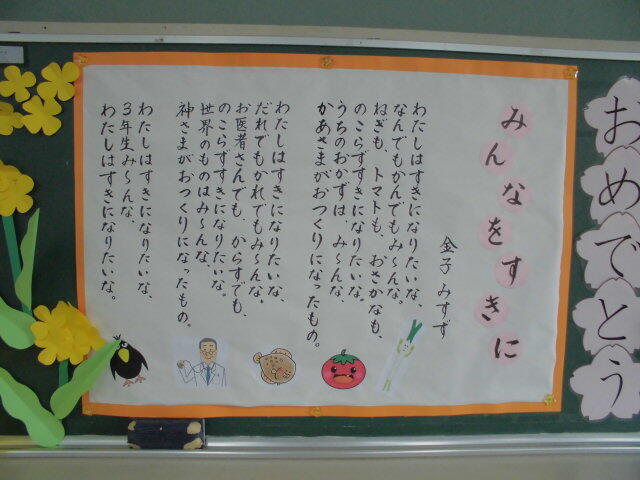 おめでとう
みんなをすきに
金子 みすず
わたしはすきになりたいな、
なんでもかんでもみ～んな。
ねぎも、トマトも、おさかなも、
のこらずすきになりたいな。
うちのおかずは、み～んな、
かあさまがおつくりになったもの。
わたしはすきになりたいな、
だれでもかれでもみ～んな。
お医者さんでも、からすでも、
のこらずすきになりたいな。
世界のものはみ～んな、
神さまがおつくりになったもの。
わたしはすきになりたいな、
3年生み～んな、
わたしはすきになりたいな。